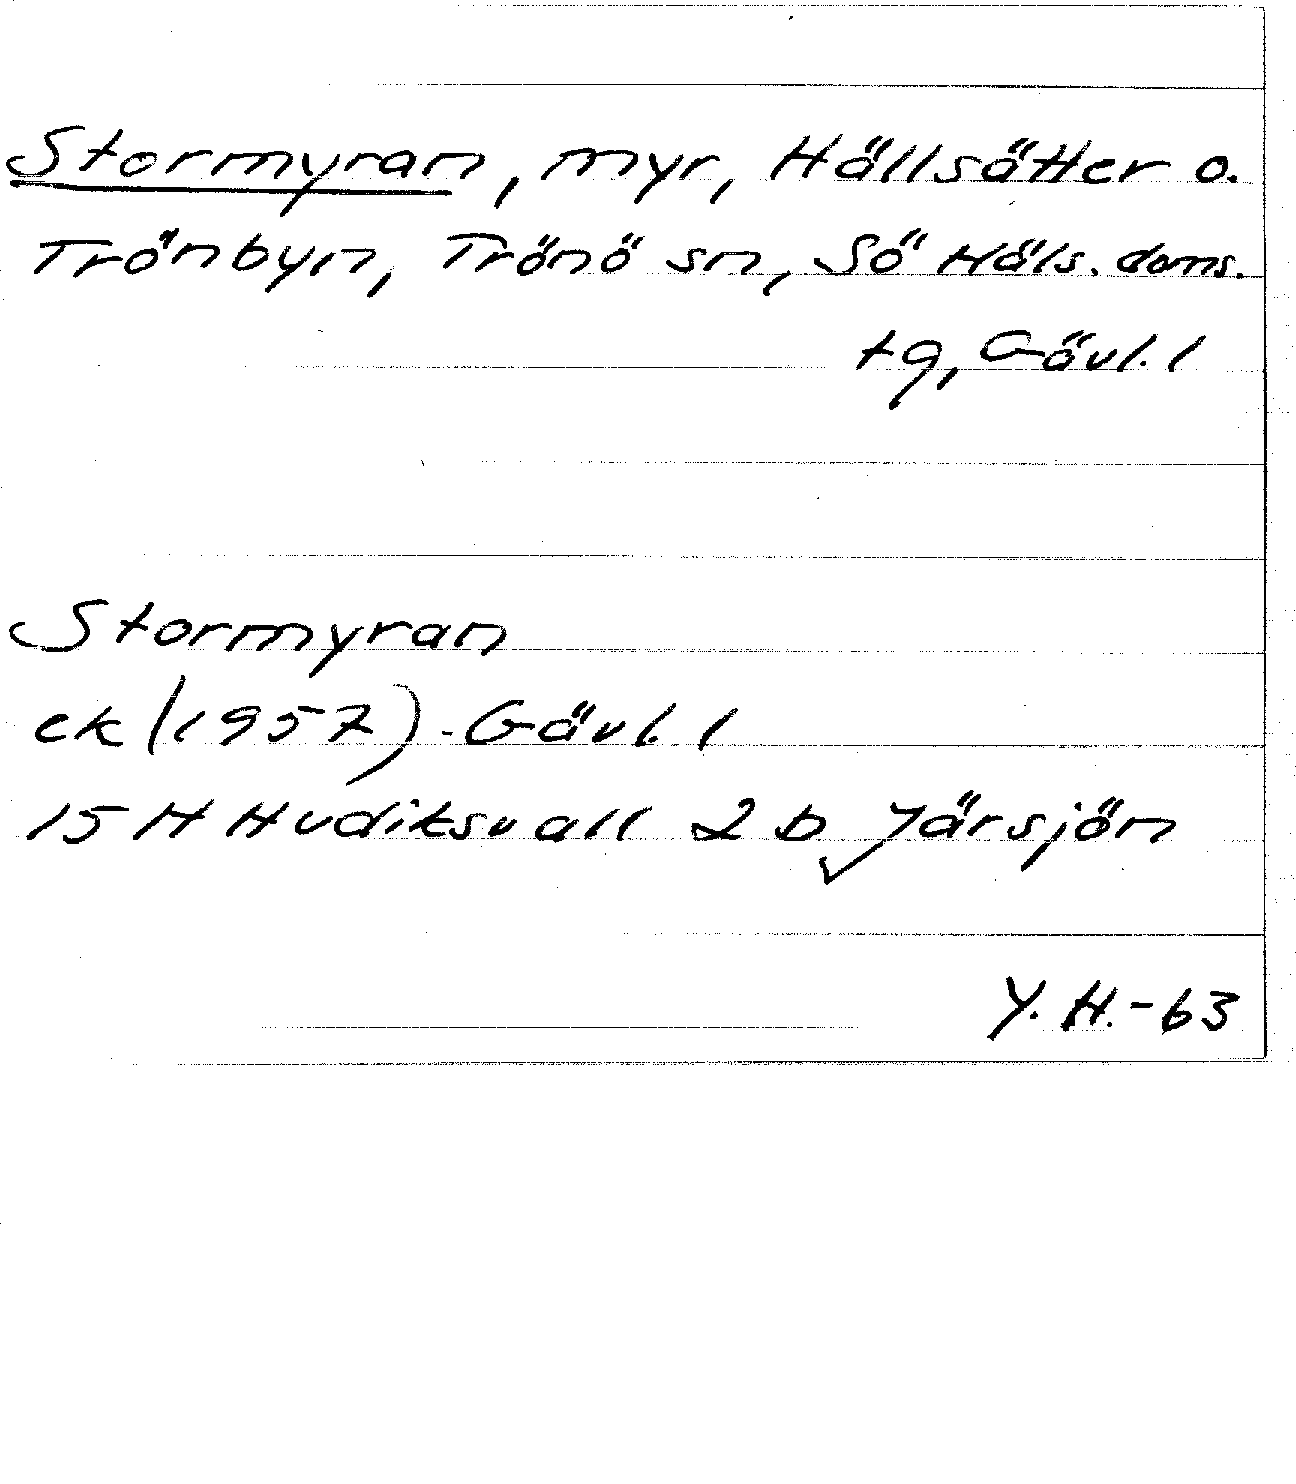 Stormyran, myr, Hällsätter o.
Trönbyn, Trönö sn, Sö Häls. doms.
tg, Gävl. l
Stormyran
ek (1957) - Gävl. l
15 H Hudiksvall 2 b Järsjön
Y. H. - 63